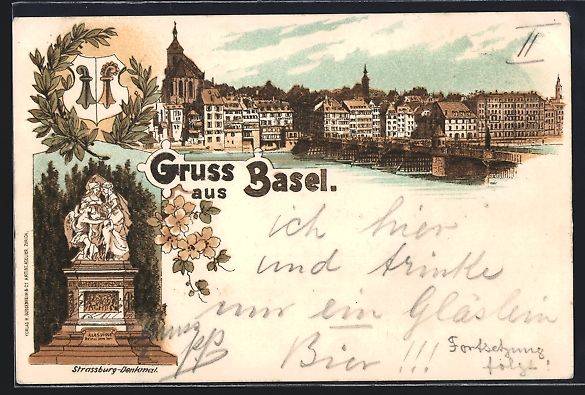 II
Gruss
aus Basel.
ich hier
und trinke
nur ein Gläslein
Bier !!!
Fortsetzung
folgt!
Strassburg-Denkmal.